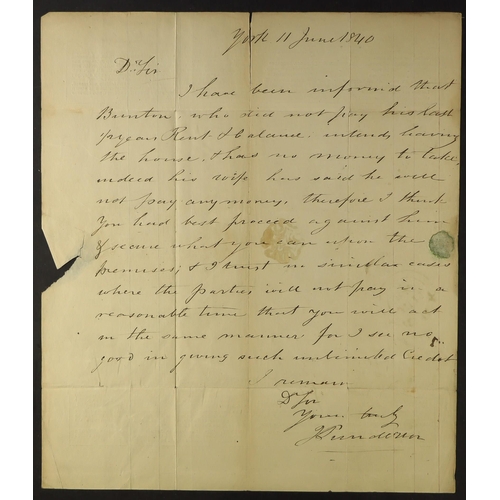 York 11 June 1840
Dr Sir
I have been informd that
Bunton, who did not pay his last
year Rent & Balance, intends leaving
the house, & has no money to take,
indeed his wife has said he will
not pay any money, therefore I think
you had best proceed against him
& secure what you can upon the
premises; & I trust in similar cases
where the parties will not pay in a
reasonable time that you will act
in the same manner for I see no
good in giving such unlimited Credit
I remain
Dr Sir
Yours truly